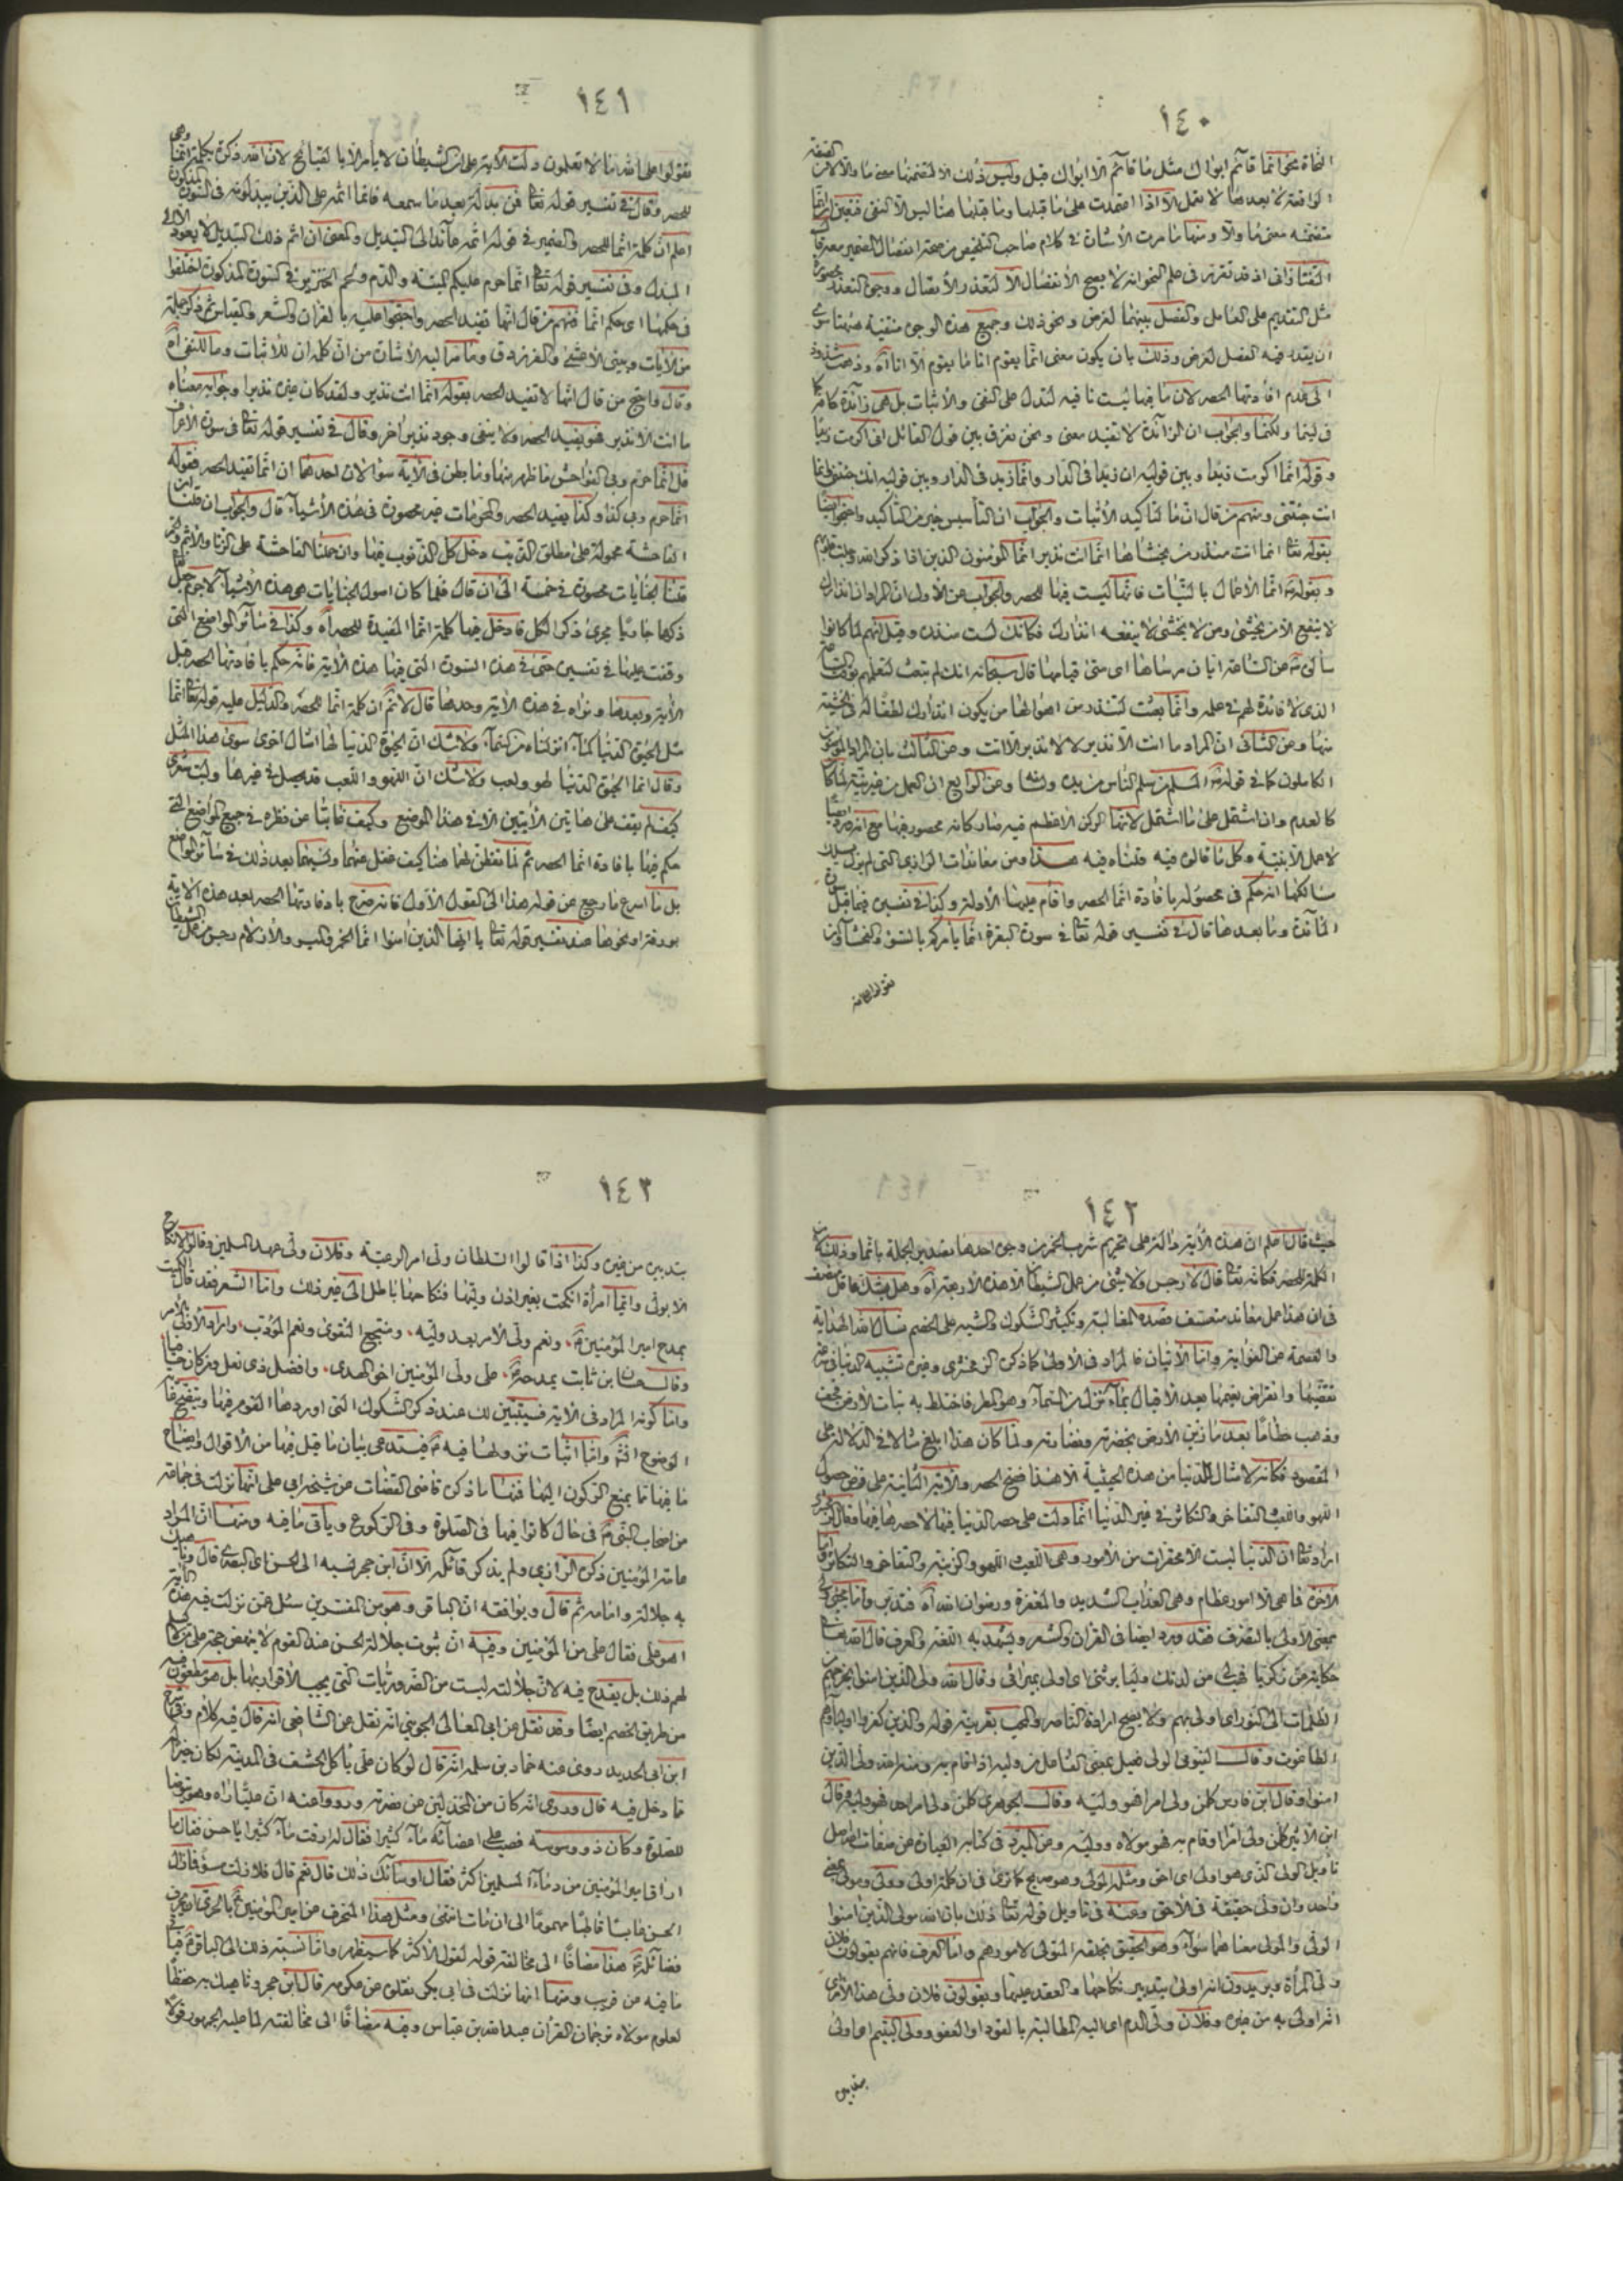 ١٤٠
النحاة نحو انما قائم ابواك مثل ما قائم الا ابواك قبل وليس ذلك الا لتضمنها معنى ما والا لان
الواقعة لا بعدها لا تعمل الا اذا اعتمدت على ما قبلها وما قبلها هنا ليس الا النفى فتعين ان انما
متضمنه معنى ما والا ومنها ما مرت الاشارة فى كلام صاحب التلخيص من صحة انفصال الضمير معه قال
التفتازانى اذ قد تقرر فى علم النحو انه لا يصح الانفصال الا لتعذر الاتصال ووجوه التعذر محصورة
مثل التقديم على العامل والفصل بينهما لغرض ونحو ذلك وجميع هذه الوجوه منتفية هنا سوى
ان يقدر فيه الفصل لغرض وذلك بان يكون معنى انما يقوم انا ما يقوم الا انا آه وذهب شذوذ
الى عدم افادتها الحصر لان ما فيها ليست نافيه لتدل على النفى والاثبات بل هى زائدة كما
فى ليتما ولكنما والجواب ان الزائدة لا تفيد معنى ونحن نفرق بين قول القائل انى اكرمت زيدا
وقوله انما اكرمت زيدا وبين قوليه ان زيدا فى الدار وانما زيد فى الدار وبين قوليه انك جئتنى وانما
انت جئتنى ومنهم من قال ان ما لتاكيد الاثبات والجواب ان التأسيس خير من التأكيد واحتجوا ايضا
بقوله تعا انما انت منذر من يخشاها انما انت نذير انما المؤمنون الذين اذا ذكر الله وجلت قلوبهم
وبقوله انما الاعمال بالنيات فانما ليست فيها للحصر والجواب عن الاول ان المراد ان انذارك
لا ينفع الا من يخشى ومن لا يخشى لا ينفعه انذارك فكانك لست منذره وقيل انهم لما كانوا
سألوه عن الساعة ايان مرساها اى متى قيامها قال سبحانه انك لم تبعث لتعلمهم بوقت الساعة
الذى لا فائدة لهم فى علمه وانما بعثت لتنذر من اهوالها من يكون انذارك لطفا له فى الخشية
منها وعن الثانى ان المراد ما انت الا نذير لا لا نذير الا انت وعن الثالث بان المراد المؤمنون
الكاملون كما فى قوله المسلم من سلم الناس من يده ولسانه وعن الرابع ان العمل من غير نية لما كان
كالعدم وان اشتمل على ما اشتمل لانها الركن الاعظم فيه صار كانه محصور فيها مع انه ورد ايضا
لا عمل الا بنية وكل ما قالوه فيه قلناه فيه هذا ومن معاندات الرازى التى لم يزل يسلك
مسالكها انه حكم فى محصوله بافادة انما الحصر واقام عليها الادلة وكذا فى تفسيره فيما قبل سورة
المائدة وما بعدها قال فى تفسير قوله تعا فى سورة البقرة انما يأمركم بالسوء والفحشاء وان
تقولوا على الله
١٤١
تقولوا على الله ما لا تعلمون دلت الاية على ان الشيطان لا يأمر الا بالقبائح لان الله ذكره بكلمة انما وهى
للحصر وقال فى تفسير قوله تعا فمن بدله بعد ما سمعه فانما اثمه على الذين يبدلونه فى السورة المذكورة
اعلم ان كلمة انما للحصر والضمير فى قوله اثمه عائد الى التبديل والمعنى ان اثم ذلك التبديل لا يعود الا الى
المبدل وفى تفسير قوله تعا انما حرم عليكم الميتة والدم ولحم الخنزير فى السورة المذكورة اختلفوا
فى حكمها اى حكم انما فمنهم من قال انها تفيد الحصر واحتجوا عليه بالقران والشعر والقياس ثم ذكر جملة
من الايات وبيتى الاعشى والفرزدق وما مر اليه الاشارة من ان كلمة ان للاثبات وما للنفى آه
وقال واحتج من قال انها لا تفيد الحصر بقوله انما انت نذير ولقد كان غيره نذيرا وجوابه معناه
ما انت الا نذير فهو يفيد الحصر ولا ينفى وجود نذير اخر وقال فى تفسير قوله تعا فى سورة الاعراف
قل انما حرم ربى الفواحش ما ظهر منها وما بطن فى الاية سؤالان احدهما ان انما تفيد الحصر فقوله
انما حرم ربى كذا وكذا يفيد الحصر والمحرمات غير محصورة فى هذه الاشياء قال والجواب ان قلنا ان
الفاحشة محمولة على مطلق الذنب دخل كل الذنوب فيها وان حملنا الفاحشة على الزنا والاثم على الخمر
قلنا الجنايات محصورة فى خمسة الى ان قال فلما كان اصول الجنايات هى هذه الاشياء لا جرم جعل
ذكرها جاريا مجرى ذكر الكل فادخل فيها كلمة انما المفيدة للحصر آه وكذا فى سائر المواضع التى
وقفت عليها فى تفسيره حتى فى هذه السورة التى فيها هذه الاية فانه حكم بافادتها الحصر قبل
الاية وبعدها وتراه فى هذه الاية وحدها قال لا نم ان كلمة انما للحصر والدليل عليه قوله تعا انما
مثل الحيوة الدنيا كماء انزلناه من السماء ولا شك ان الحيوة الدنيا لها امثال اخرى سوى هذا المثل
وقال انما الحيوة الدنيا لهو ولعب ولا شك ان اللهو واللعب قد يحصل فى غيرها وليت شعرى
كيف لم يقف على هاتين الايتين الا فى هذا الموضع وكيف غابتا عن نظره فى جميع المواضع التى
حكم فيها بافادة انما الحصر ثم لما تفطن لهما هنا كيف غفل عنهما ونسيهما بعد ذلك فى سائر المواضع
بل ما اسرع ما رجع عن قوله هذا الى القول الاول فانه صرح بافادتها الحصر بعد هذه الاية
بورقة او نحوها عند تفسير قوله تعا يا ايها الذين امنوا انما الخمر والميسر والازلام رجس من عمل الشيطان
١٤٢
حيث قال اعلم ان هذه الاية دالة على تحريم شرب الخمر من وجوه احدها تصدير الجملة بانما وذلك لان هذه
الكلمة للحصر فكانه تعا قال لا رجس ولا شىء من عمل الشيطان الا هذه الاربعة آه وهل يشك عاقل منصف
فى ان هذا عمل معاند متعسف قصده المغالبة وتكثير الشكوك والشبه على الخصم نسأل الله الهداية
والعصمة عن الغواية واما الايتان فالمراد فى الاولى كما ذكره الزمخشرى وغيره تشبيه الدنيا فى سرعة
تقضيها وانقراض نعيمها بعد الاقبال بماء نزل من السماء وهو المطر فاختلط به نبات الارض فجف
وذهب حطاما بعد ما زين الارض بخضرته ونضارته ولما كان هذا ابلغ مثالا فى الدلالة على
المقصود فكانه لا مثال للدنيا من هذه الحيثية الا هذا فصح الحصر والاية الثانية على فرض حصول
اللهو واللعب والتفاخر والتكاثر فى غير الدنيا انما دلت على حصر الدنيا فيها لا حصرها فيها وقال الزمخشرى
اراد تعا ان الدنيا ليست الا محقرات من الامور وهى اللعب واللهو والزينة والتفاخر والتكاثر واما
الاخرة فما هى الا امور عظام وهى العذاب الشديد والمغفرة ورضوان الله آه فتدبر واما مجىء الولى
بمعنى الاولى بالتصرف فقد ورد ايضا فى القران والشعر ويشهد به اللغة والعرف قال الله تعا
حكاية عن زكريا فهب لى من لدنك وليا يرثنى اى اولى بميراثى وقال الله ولى الذين امنوا يخرجهم من
الظلمات الى النور اى اولى بهم ولا يصح ارادة الناصر والمحب بقرينة قوله والذين كفروا اولياؤهم
الطاغوت وقال الفيومى الولى فعيل بمعنى الفاعل من وليه اذا قام به ومنه الله ولى الذين
امنوا وقال ابن فارس كل من ولى امرا فهو وليه وقال الجوهرى كل من ولى امر احد فهو وليه وقال
ابن الاثير كل من ولى امرا او قام به فهو مولاه ووليه وعن المبرد فى كتابه العبارة عن صفات الله اصل
تأويل الولى الذى هو اولى اى احق ومثله المولى وهو صريح كما ترى فى ان كلمة اولى وولى ومولى بمعنى
واحد وان ولى حقيقة فى الاحق وعنه فى تاويل قوله تعا ذلك بان الله مولى الذين امنوا
الولى والمولى معناهما سواء وهو الحقيق بخلقه المتولى لامورهم واما العرف فانهم يقولون فلان
ولى المرأة ويريدون انه اولى بتدبير نكاحها والعقد عليها ويقولون فلان ولى هذا الامر اى
انه اولى به من غيره وفلان ولى الدم اى اليه المطالبة بالقود او العفو وولى اليتيم اى اولى
بتدبيره
١٤٣
بتدبيره من غيره وكذا اذا قالوا السلطان ولى امر الرعية وفلان ولى عهد المسلمين وقالوا لا نكاح
الا بولى وايما امرأة انكحت بغير اذن وليها فنكاحها باطل الى غير ذلك واما الشعر فقد قال الكميت
بمدح امير المؤمنين ونعم ولى الامر بعد وليه ومنتجع التقوى ونعم المؤدب واراد الاولى بالامر
وقال حسان ابن ثابت يمدحه على ولى المؤمنين اخى الهدى وافضل ذى نعل ومن كان حافيا
واما كونه المراد فى الاية فسيتبين لك عند ذكر الشكوك التى اوردها القوم فيها ويتضح غاية
الوضوح انشاء الله واما اثبات نزولها فيه فيستدعى بيان ما قيل فيها من الاقوال وايضاح
ما فيها مما يمنع الركون اليها فمنها ما ذكره قاضى القضاة عن شيخه ابى على انها نزلت فى جماعة
من اصحاب النبى فى حال كانوا فيها فى الصلوة وفى الركوع وياتى ما فيه ومنها ان المراد
عامة المؤمنين ذكره الرازى ولم يذكر قائله الا ان ابن حجر نسبه الى الحسن اى البصرى قال وناهيك
به جلالة وامامة ثم قال ويوافقه ان الباقر وهو من المفسرين سئل عمن نزلت فيه هذه الاية
اهو على فقال على من المؤمنين وفيه ان ثبوت جلالة الحسن عند القوم لا ينهض حجة على من لا
لهم ذلك بل يقدح فيه لان جلالته ليست من الضروريات التى يجب الاقرار بها بل هو مطعون فيه
من طريق الخصم ايضا وقد نقل عن ابى المعالى الجوينى انه نقل عن الشافعى انه قال فيه كلام وفى شرح
ابن ابى الحديد روى عنه حماد بن سلمه انه قال لو كان على يأكل الحشف فى المدينة لكان خيرا له
مما دخل فيه قال وروى انه كان من المخذلين عن نصرته ورووا عنه ان عليا راه وهو يتوضا
للصلوة وكان ذو وسوسة فصب على اعضائه ماء كثيرا فقال له ارقت ماء كثيرا يا حسن فقال ما
اراق امير المؤمنين من دماء المسلمين اكثر فقال او ساءك ذلك قال نعم قال فلا زلت مسوءا فما زال
الحسن عابسا قاطبا مهموما الى ان مات انتهى ومثل هذا المنحرف عن امير المؤمنين بالحرى ان يحرف
فضائله هذا مضافا الى مخالفته قوله لقول الاكثر كما سيظهر واما نسبته ذلك الى الباقر فياتى
ما فيه من قريب ومنها انها نزلت فى ابى بكر نقلوه عن عكرمه قال ابن حجر وناهيك به حفظا
لعلوم مولاه ترجمان القران عبد الله بن عباس وفيه مضافا الى مخالفته لما عليه الجمهور قولا